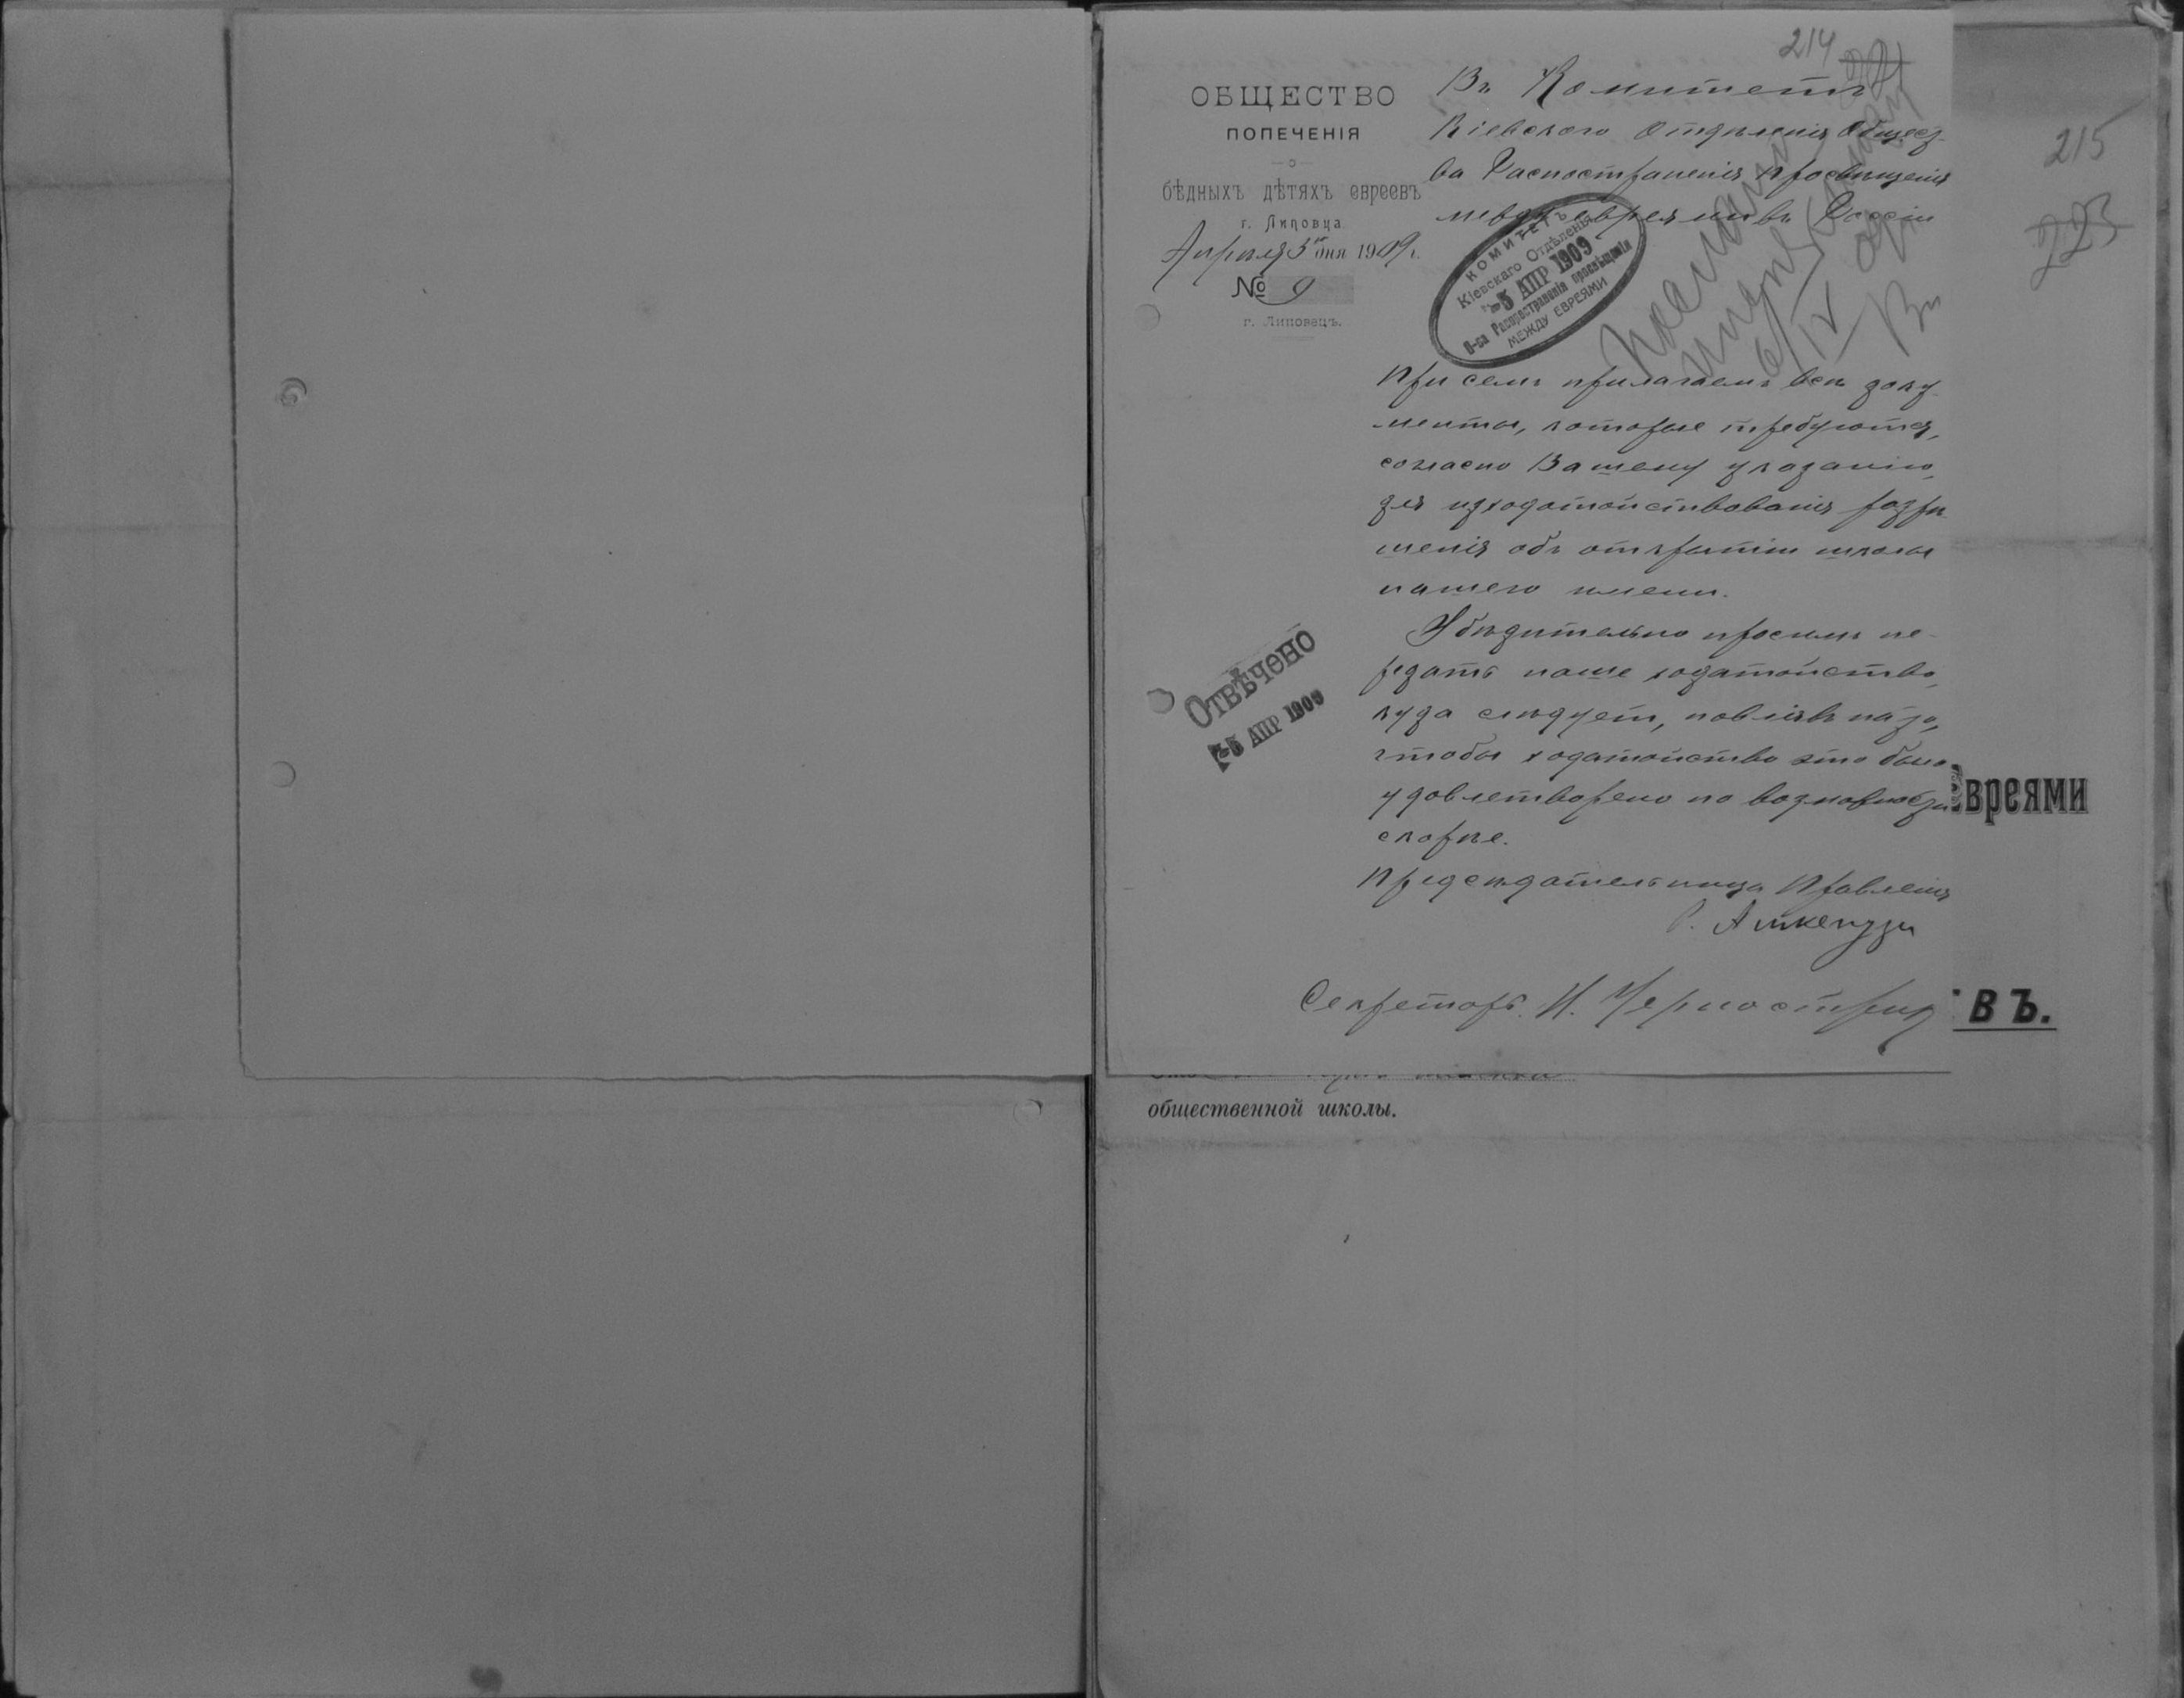 214
215
223
ОБЩЕСТВО
ПОПЕЧЕНІЯ
о
бѣдныхъ дѣтяхъ евреевъ
г. Липовца
Апрѣля 3го дня 1909 г.
№ 9
г. Липовецъ.
Въ Комитетъ
Кіевскаго Отдѣленія Общест-
ва Распостраненія Просвѣщенія
между евреями въ Россіи
КОМИТЕТЪ
Кіевскаго Отдѣленія
5 АПР 1909
О-ва Распространенія просвѣщенія
МЕЖДУ ЕВРЕЯМИ
При семъ прилагаемъ всѣ доку-
менты, которые требуются,
согласно Вашему указанію,
для исходатайствованія разрѣ-
шенія объ открытіи школы
нашего имени.
Убѣдительно просимъ пе-
редать наше ходатайство,
куда слѣдует, повліявъ на то,
чтобы ходатайство это было
удовлетворено по возможности
скорѣе.
Предсѣдательница Правленія
Секретарь И. Черноструд
Отвѣчено
5 АПР 1909
вреями
ВЪ.
общественной школы.